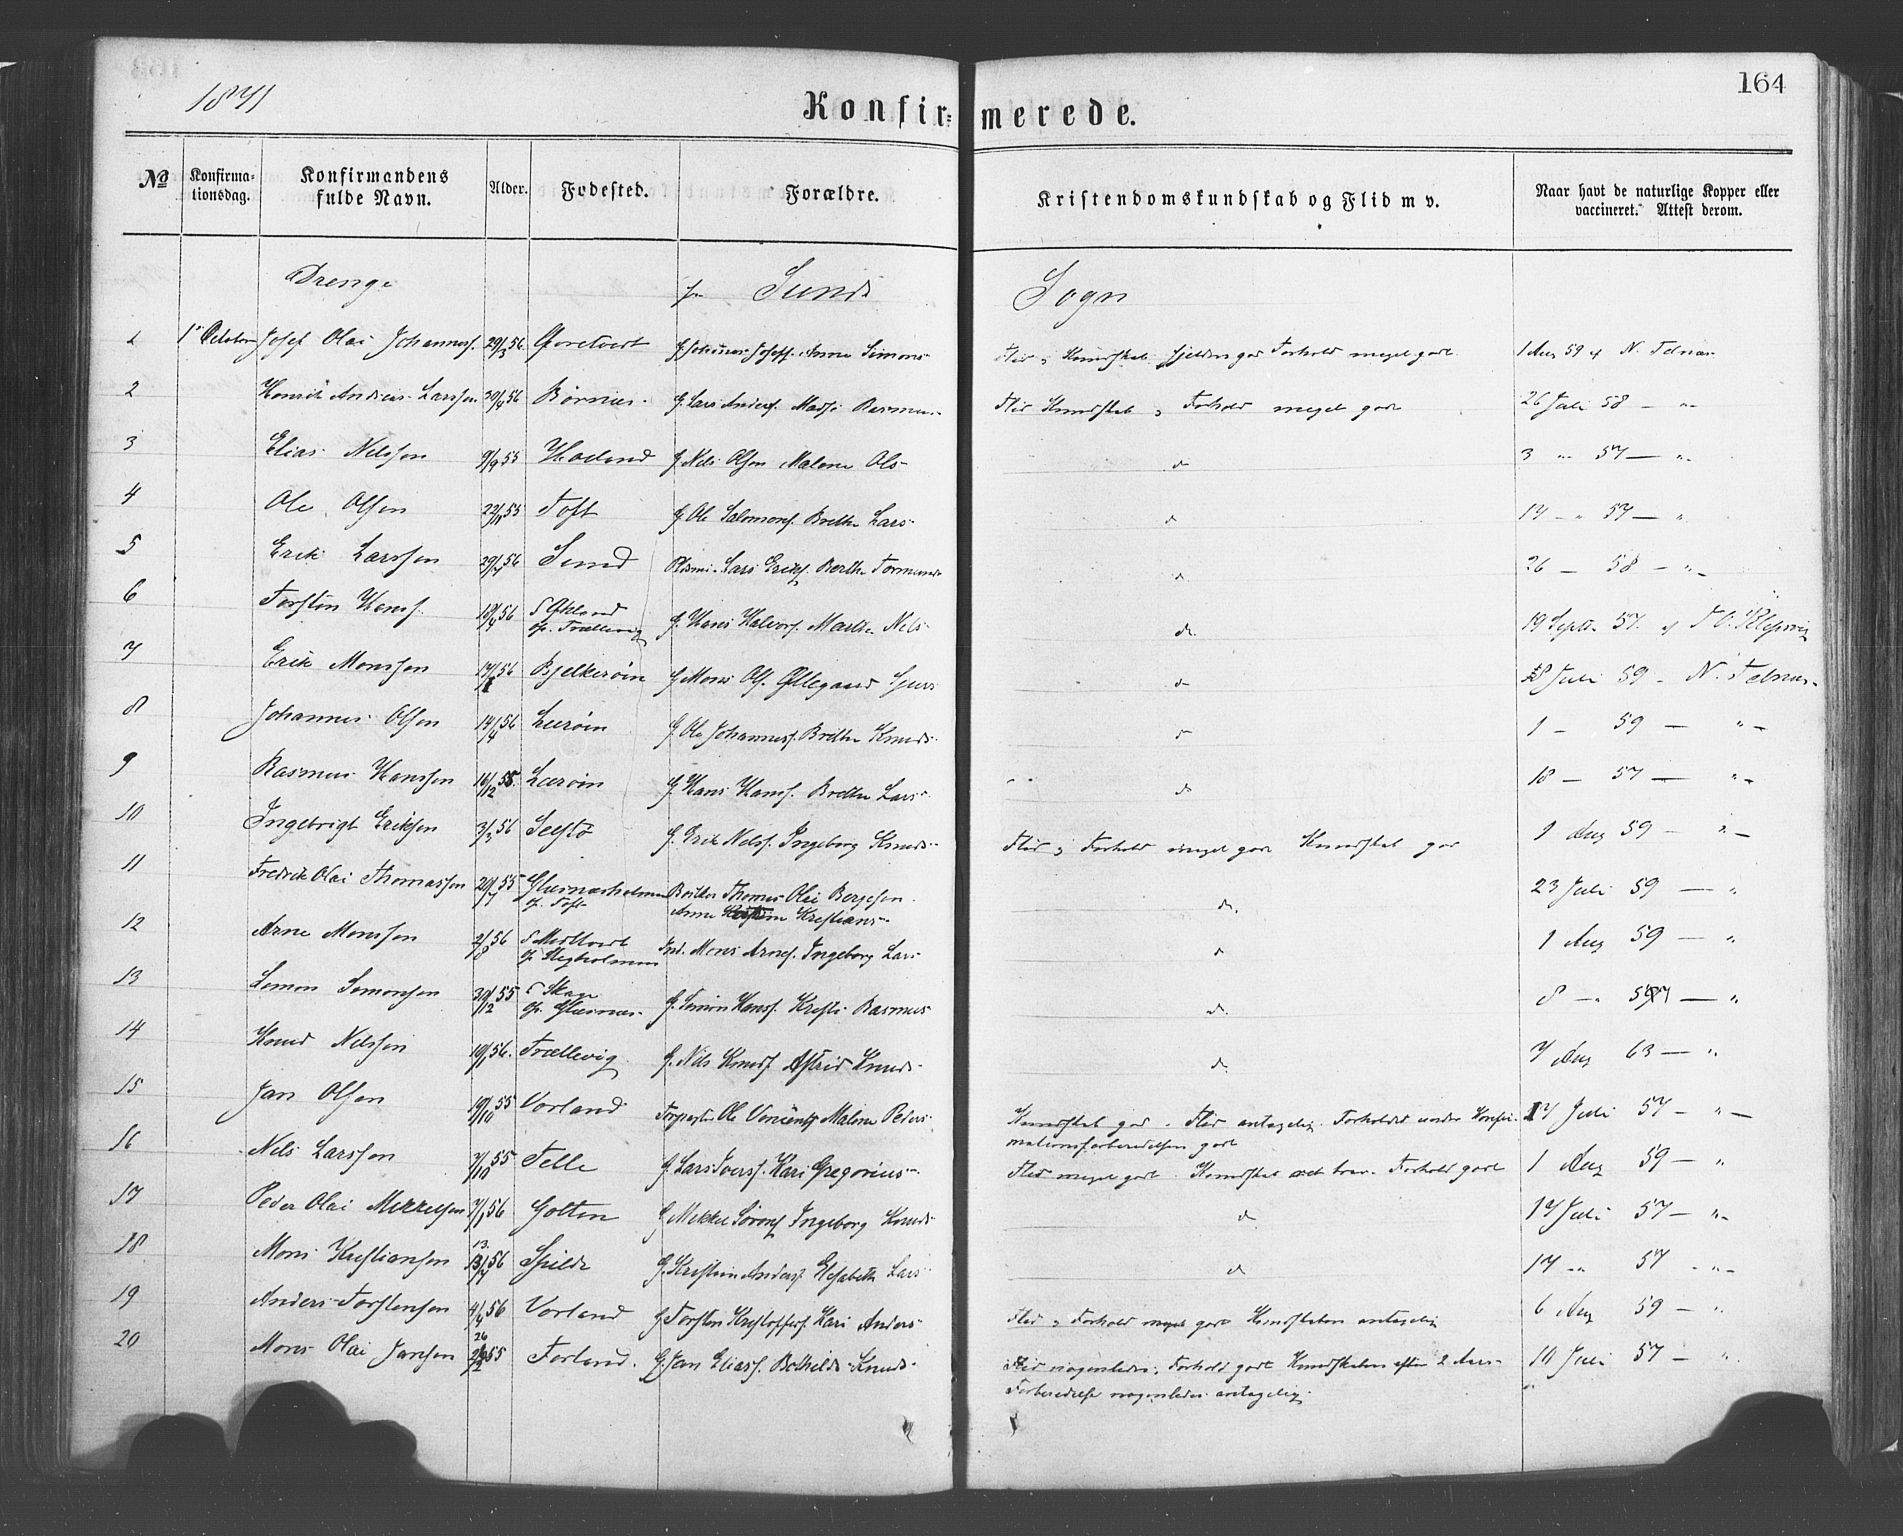 164
1871
Konfirmerede.
No Konfirmationsdag. Konfirmandens fulde Navn. Alder. Fødested. Forældre. Kristendomskundskab og Flid m v. Naar havt de naturlige Kopper eller vaccineret. Attest derom.
Drenge fr Sunds Sogn
1 1 October Josef Olai Johannesf. 29/3 56. G. Johannes Josefs. Anne Simons- Flid & Kundskab Forhold meget godt 1 Aug 59 af N. Telnæs
2 Henrik Andreas Larssen 30/4 56 Børnæs. G. Lars Andersf. Madsi Rasmus- Flid Kundskab & Forhold meget godt 26 Juli 58 - "-
3 Elias Nilssen 9/9 55 Høeland G Nils Olsen Malene Ols- d 3 " 57 - "-
4 Ole Olsen 55 Toft G Ole Salomonsf. Brithe Lars- d 17 - " 57 - "
5 Erik Larssen 29/7 56 Sund Lars Eriksf. Berthe Tormunds d 26 - 58 - "-
6 Torsten Hansf. 56 f Økland op. Trællevig G. Hans Halvorsf. Marthe Nils- do. 19 Septr. 57. af T O. Klepsvig
7 Erik Monssen 56 Bjelkerøen G Mons Olsf. Øllegaard Sjurs d 8 Juli 59 - N. Telnæs-
8 Johannes Olsen 14/4 56 Lerøen G Ole Johannesf. Brithe Knuds- d 1 - 59 - "-
9 Rasmus Hanssen 16/12 55. Lærøen G. Hans Hansf. Brithe Lars- d 18 - 57 - "-
10 Ingebrigt Eriksen 3/3 56 Selstø G. Erik Nelsf. Ingeborg Knuds- Flid & Forhold meget godt Kundskab god 1 Aug 59 - "-
11 Fredrik Olai Thomassen 20/7 55 Glesnæsholmen op. Toft Thomas Olai Bergesen Anne Kristians- do. 23 Juli 59 - "
12 Arne Monssen 2/8 56 f Midttveit op. Høgholmen Ind. Mons Arnesf. Ingeborg Lars- d 1 Aug 59 - "
13 Simon Simonsen 30/12 55 f Skage op. Glesnæs. G. Simon Hansf. Kristi Rasmus- d. 8 - " 57 - "
14 Knud Nilssen 56. Trællevig G. Nils Knudsf Astrid Knuds- d. 7 Aug 63 - ".
15 Jan Olsen 55 Vorland Ole Malene Peders- Kundskab god. Flid antagelig. Forholdet under Konfirmationsforberedelsen godt 17 Juli 57 - "-
16 Nils Larssen 3/10 55 Telle G. Lars Iversf. Kari Gregorius- Flid meget godt. Kundskab ret brav. Forhold godt 1 Aug 59 - "
17 Peder Olai Mikkelsen 7/1 56 Golten G Mikkel Sørensf Ingeborg Knuds- d. 17 Juli 57 - "-
18 Mons Kristianssen 13. 56 Spilde G. Kristian Andersf Elisabeth Lars- d 17 " 57 - "-
19 Anders Torstensen 4/4 56 Vorland G Torsten Kristoffersf. Kari Anders- Flid & Forhold meget godt Kundskaben antagelig 6 Aug 59 - "
20 Mons Olai Janssen 26/12 55 Forland. G. Jan Eliasf. Bothilde Knuds- Flid nogenledes. Forhold godt Kundskaben efter 2 Aars Forberedelse nogenledes antagelig. 10 Juli 57 - ".